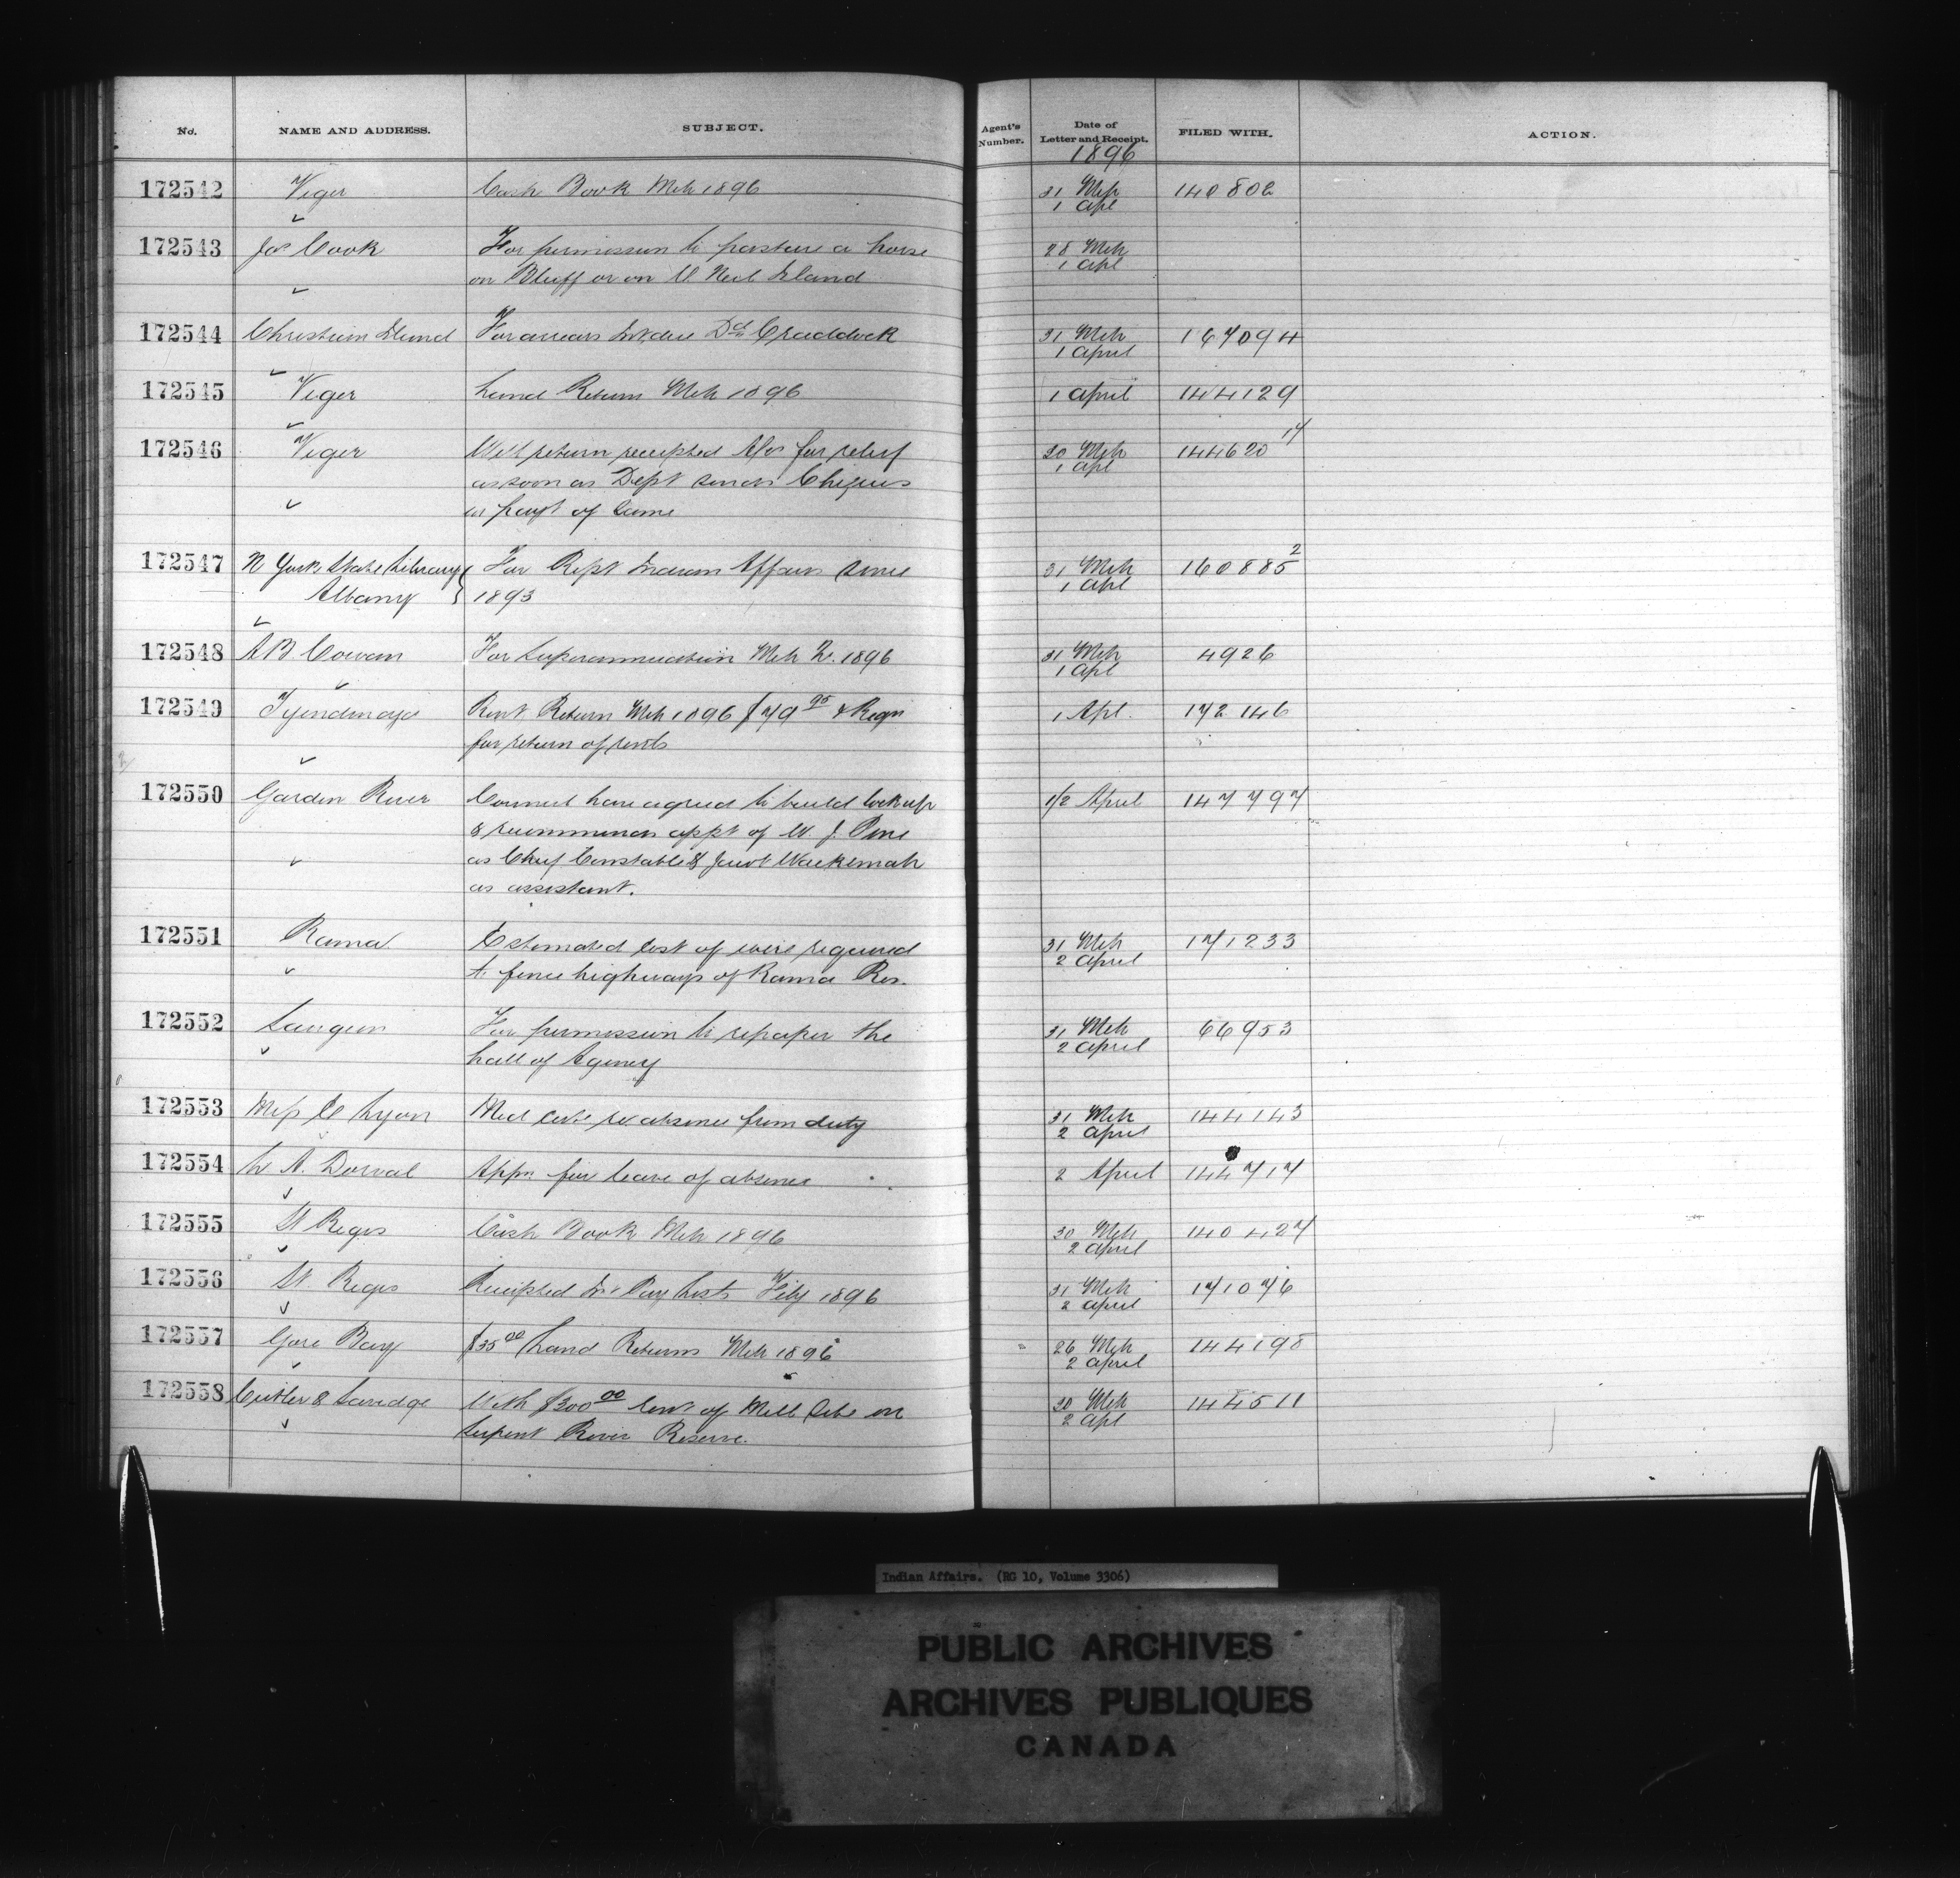 No. NAME AND ADDRESS. SUBJECT. Agent's Number. Date of Letter and Receipt. FILED WITH. ACTION.
1896
172542 Viger Cash Book Mch 1896 31 Mch 140802
1 Apl
172543 Jos Cook For permission to pasture a horse 28 Mch
on Bluff or on Island 1 Apl
172544 Christian For arrears Int. due Craddock 31 Mch 167094
1 April
172545 Viger Land Return Mch 1896 1 April 144129
172546 Viger Will return receipted for relief 30 Mch 144620 17
as soon as Dept sends Cheques 1 Apl
in payt of same
172547 N York State Library For Rept Indian Affairs since 31 Mch 160885 2
Albany 1893 1 Apl
172548 A B Cowan For Superannuation Mch 1896 31 Mch 4926
1 Apl
172549 Tyendinaga Rent Return Mch 1896 $79 95 & Reqn 1 Apl. 172146
for return of rents
172550 Garden River Council have agreed to build lock up 1/2 April 147797
& recommends appt of W. J. Pine
as Chief Constable & Jacob Waukemah
as assistant.
172551 Rama Estimated cost of wire required 31 Mch 171233
to fence highways of Rama Res. 2 April
172552 Saugeen For permission to repaper the 31 Mch 66953
hall of Agency 2 April
172553 Miss C Lyon Med cert. re absence from duty 31 Mch 144143
2 April
172554 L A. Dorval Appn. for leave of absence 2 April 144717
172555 St Regis Cash Book Mch 1896 30 Mch 140427
2 April
172556 St Regis Receipted Int Pay Lists Feby 1896 31 Mch 171076
2 April
172557 Gore Bay $35 00 Land Returns Mch 1896 26 Mch 144198
2 April
172558 Cutler & Savidge With $300 00 rent of Mill Site on 30 Mch 144511
Serpent River Reserve. 2 Apl
Indian Affairs. (RG 10, Volume 3306)
PUBLIC ARCHIVES
ARCHIVES PUBLIQUES
CANADA